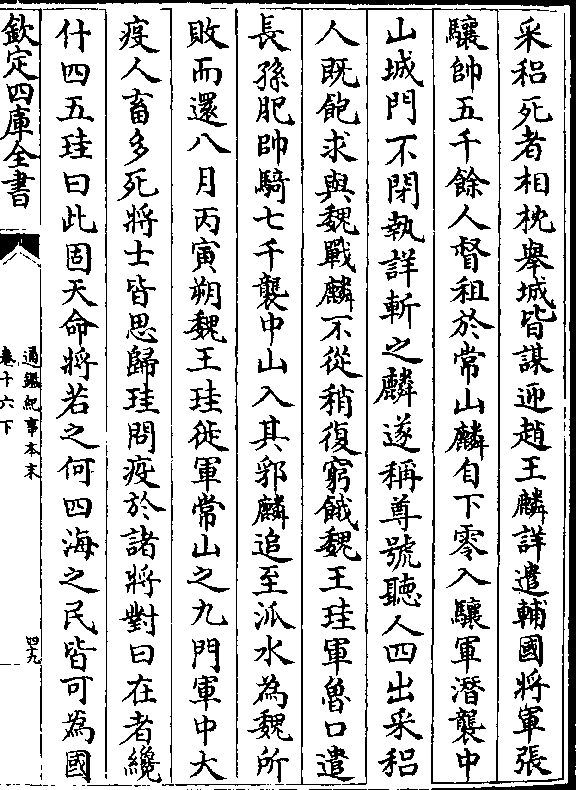 采稆死者相枕舉城皆謀迎趙王麟詳遣輔國將軍張
驤帥五千餘人督租於常山麟自下零入驤軍潛襲中
山城門不閉執詳斬之麟遂稱尊號聽人四出采稆
人既飽求與魏戰麟不從稍復窮餓魏王珪軍魯口遣
長孫肥帥騎七千襲中山入其郛麟追至泒水為魏所
敗而還八月丙寅朔魏王珪徙軍常山之九門軍中大
疫人畜多死將士皆思歸珪問疫於諸將對曰在者纔
什四五珪曰此固天命將若之何四海之民皆可為國
欽定四庫全書
通鑑紀事本末
卷十六下
四十九